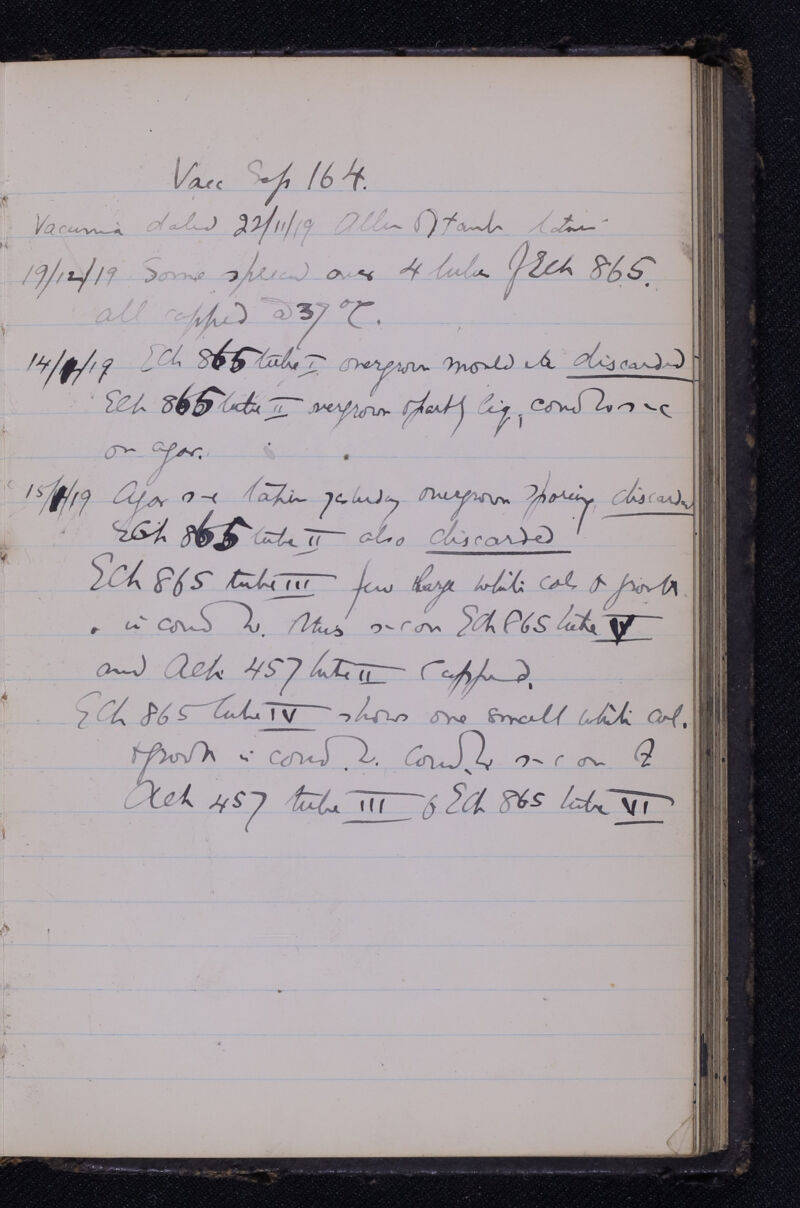 Vacc Sep 164.
Vaccinia dated 22/11/19
19/12/19 Some spread over 4 tubes of ECh 865.
all capped @ 37°C.
14/1/19 ECh 865 tube I overgrown mould etc discarded
ECh 865 tube II overgrown & partly liq, cond s-c
on agar.
15/1/19 Agar s-c taken yesterday overgrown sporing, discarded
ECh 865 tube II also discarded
ECh 865 tube III few large white cols & growth
in cond W. this s-c on ECh 865 tube V
and ACh 457 tube II Capped.
ECh 865 tube IV shows one small white col.
& growth in cond. W. Cond. W s-c on
ACh 457 tube III & ECh 865 tube VI